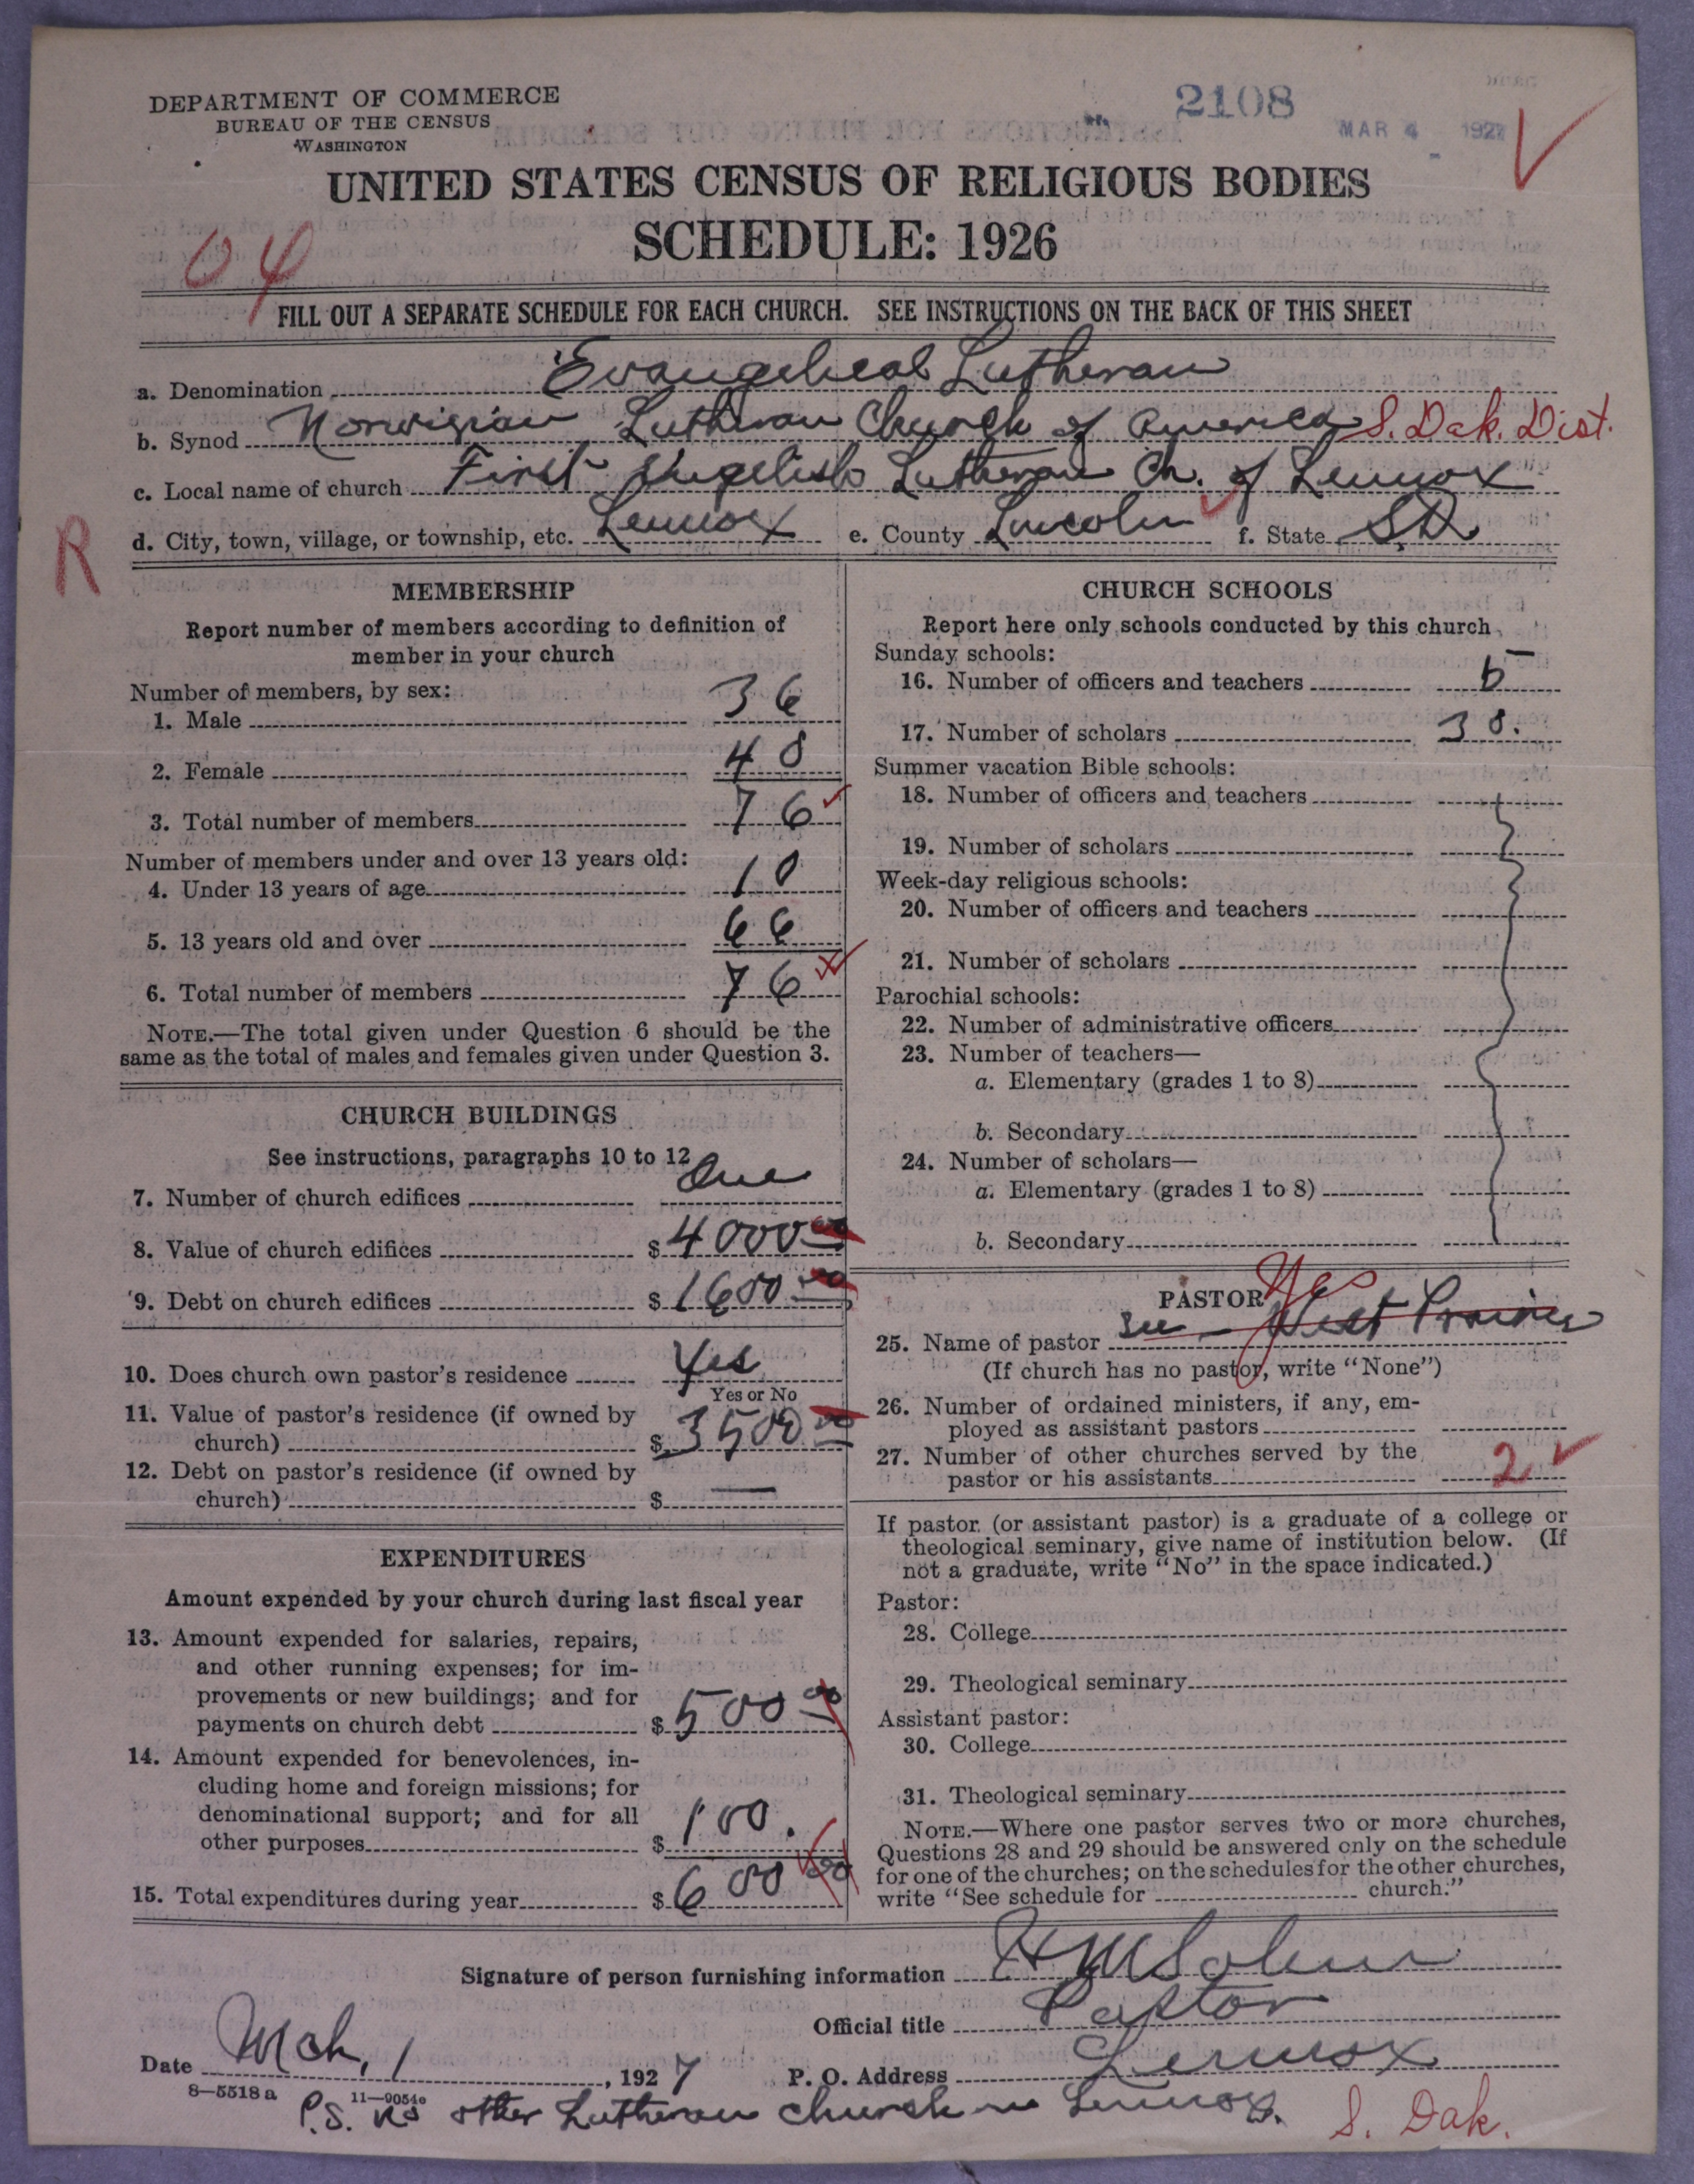 DEPARTMENT OF COMMERCE
BUREAU OF THE CENSUS
WASHINGTON
2108
MAR 4 1927
UNITED STATES CENSUS OF RELIGIOUS BODIES
SCHEDULE: 1926
04
FILL OUT A SEPARATE SCHEDULE FOR EACH CHURCH. SEE INSTRUCTIONS ON THE BACK OF THIS SHEET
a. Denomination Evangelical Lutheran
b. Synod Norwegian Lutheran Church of America S. Dak. Dist.
c. Local name of church First English Lutheran Ch. of Lennox
d. City, town, village, or township, etc. Lennox e. County Lincoln f. State SD
R
MEMBERSHIP
Report number of members according to definition of
member in your church
Number of members, by sex:
1. Male 36
2. Female 40
3. Total number of members 76
Number of members under and over 13 years old:
4. Under 13 years of age 10
5. 13 years old and over 66
6. Total number of members 76
NOTE.—The total given under Question 6 should be the
same as the total of males and females given under Question 3.
CHURCH BUILDINGS
See instructions, paragraphs 10 to 12
7. Number of church edifices One
8. Value of church edifices $ 4000 00
9. Debt on church edifices $ 1600 00
10. Does church own pastor's residence Yes
Yes or No
11. Value of pastor's residence (if owned by
church) $ 3500 00
12. Debt on pastor's residence (if owned by
church) $ —
EXPENDITURES
Amount expended by your church during last fiscal year
13. Amount expended for salaries, repairs,
and other running expenses; for im-
provements or new buildings; and for
payments on church debt $ 500 00
14. Amount expended for benevolences, in-
cluding home and foreign missions; for
denominational support; and for all
other purposes $ 100.
15. Total expenditures during year $ 600 00
CHURCH SCHOOLS
Report here only schools conducted by this church
Sunday schools:
16. Number of officers and teachers 5
17. Number of scholars 30.
Summer vacation Bible schools:
18. Number of officers and teachers
19. Number of scholars
Week-day religious schools:
20. Number of officers and teachers
21. Number of scholars
Parochial schools:
22. Number of administrative officers
23. Number of teachers—
a. Elementary (grades 1 to 8)
b. Secondary
24. Number of scholars—
a. Elementary (grades 1 to 8)
b. Secondary
PASTOR Yes
25. Name of pastor See — West Prairie
(If church has no pastor, write "None")
26. Number of ordained ministers, if any, em-
ployed as assistant pastors
27. Number of other churches served by the
pastor or his assistants 2
If pastor (or assistant pastor) is a graduate of a college or
theological seminary, give name of institution below. (If
not a graduate, write "No" in the space indicated.)
Pastor:
28. College
29. Theological seminary
Assistant pastor:
30. College
31. Theological seminary
NOTE.—Where one pastor serves two or more churches,
Questions 28 and 29 should be answered only on the schedule
for one of the churches; on the schedules for the other churches,
write "See schedule for church."
Signature of person furnishing information
Official title Pastor
Date Mch, 1, 1927 P. O. Address Lennox
8—5518 a 11—9054c
P.S. No other Lutheran church in Lennox. S. Dak.